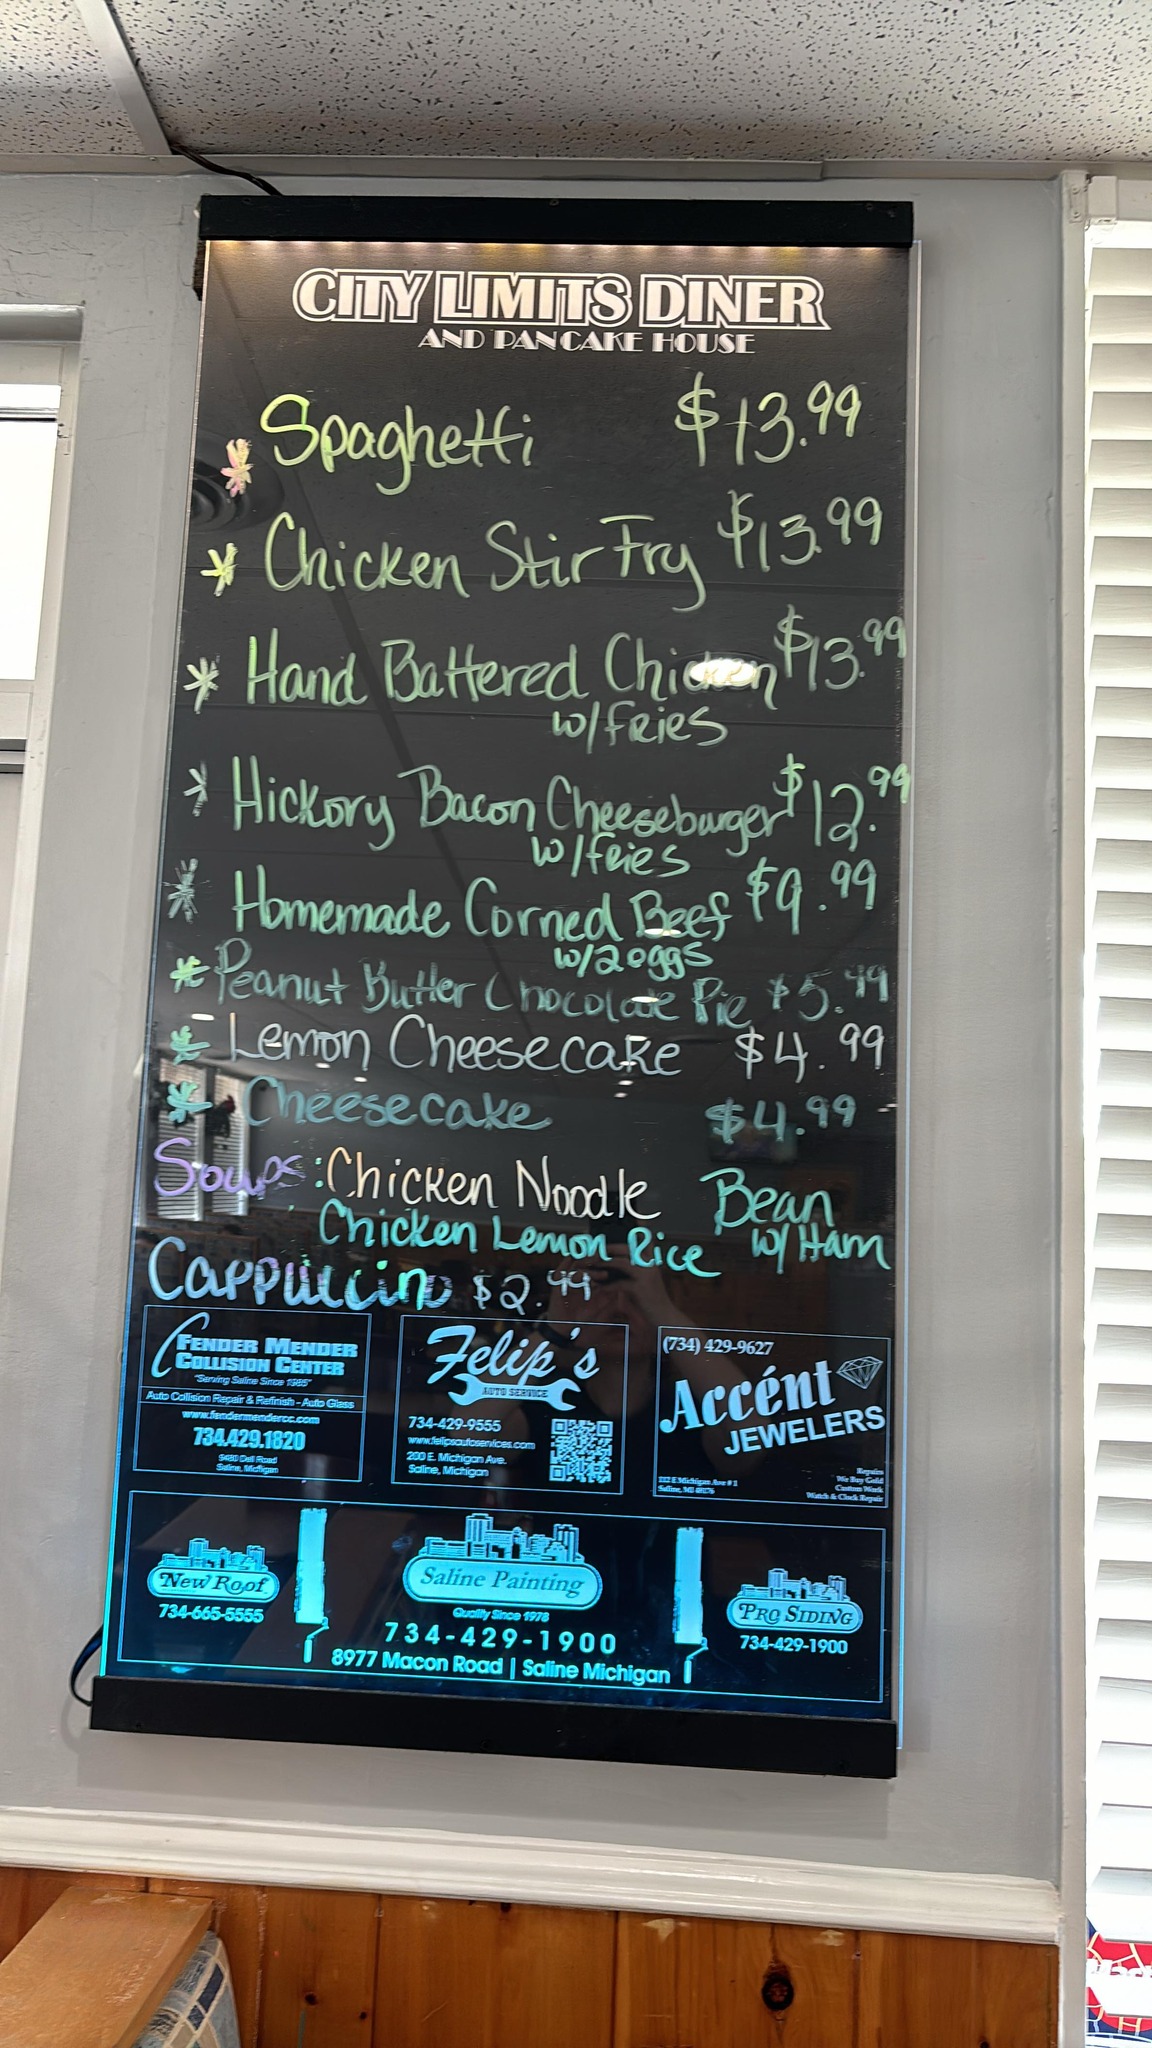 CITY LIMITS DINER
AND PANCAKE HOUSE
* Spaghetti $13.99
* Chicken Stir Fry $13.99
* Hand Battered Chicken $13.99
w/fries
* Hickory Bacon Cheeseburger $12.99
w/fries
* Homemade Corned Beef $9.99
w/2 eggs
* Peanut Butter Chocolate Pie $5.49
* Lemon Cheesecake $4.99
* Cheesecake $4.99
Soups: Chicken Noodle Bean
Chicken Lemon Rice w/ Ham
Cappuccino $2.99
FENDER MENDER
COLLISION CENTER
"Serving Saline Since 1985"
Auto Collision Repair & Refinish - Auto Glass
www.fendermendercc.com
734.429.1820
Saline, Michigan
Felip's
AUTO SERVICE
734-429-9555
www.felipsautoservices.com
200 E. Michigan Ave.
Saline, Michigan
(734) 429-9627
Accént
JEWELERS
Repairs
We Buy Gold
Custom Work
Watch & Clock Repair
112 E Michigan Ave # 1
Saline, MI 48176
New Roof
734-665-5555
Saline Painting
Quality Since 1978
734-429-1900
8977 Macon Road | Saline Michigan
PRO SIDING
734-429-1900